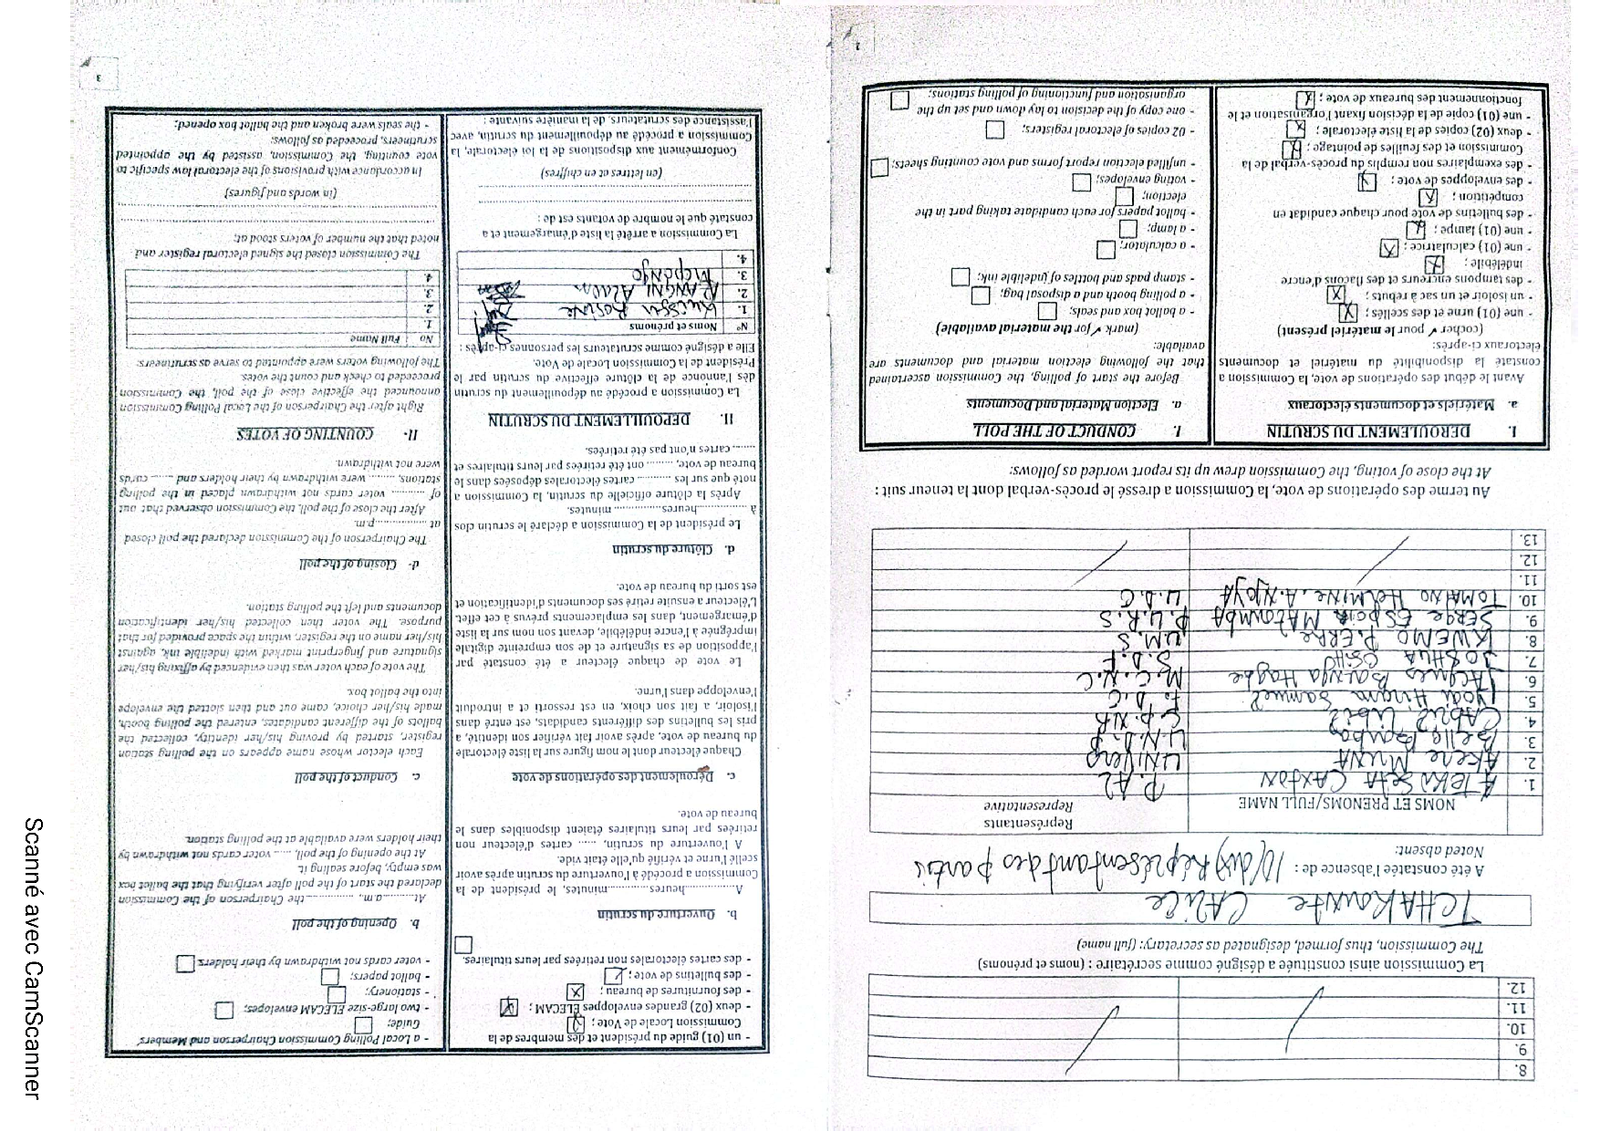 8.
9.
10.
11.
12.
La Commission ainsi constituée a désigné comme secrétaire : (noms et prénoms)
The Commission, thus formed, designated as secretary: (full name)
TCHAKOUNTE CALICE
A été constatée l'absence de : 10(dix) Représentant des partis
Noted absent:
NOMS ET PRENOMS/FULL NAME
Représentants
Representative
1. ATEKI SETA CAXTON P.A.L
2. AKERE MUNA UNIVERS
3. Bello Bouba U.N.D.P
4. CABRAL LIBII P.C.R.N
5. Hiram Samuel F.D.C
6. JACQUES Bougha Hagbe M.C.N.C
7. JOSHUA OSIH S.D.F
8. KWEMO PIERRE U.M.S
9. SERGE ESPOIR MATOMBA P.U.R.S
10. TOMAINO HERMINE. A. NJOYA U.D.C
11.
12.
13.
Au terme des opérations de vote, la Commission a dressé le procès-verbal dont la teneur suit :
At the close of voting, the Commission drew up its report worded as follows:
I. DEROULEMENT DU SCRUTIN
a. Matériels et documents électoraux
Avant le début des opérations de vote, la Commission a
constaté la disponibilité du matériel et documents
électoraux ci-après:
(cocher ✓ pour le matériel présent)
- une (01) urne et des scellés ;
- un isoloir et un sac à rebuts ;
- des tampons encreurs et des flacons d'encre
indélébile ;
- une (01) calculatrice ;
- une (01) lampe ;
- des bulletins de vote pour chaque candidat en
compétition ;
- des enveloppes de vote ;
- des exemplaires non remplis du procès-verbal de la
Commission et des feuilles de pointage ;
- deux (02) copies de la liste électorale ;
- une (01) copie de la décision fixant l'organisation et le
fonctionnement des bureaux de vote ;
I. CONDUCT OF THE POLL
a. Election Material and Documents
Before the start of polling, the Commission ascertained
that the following election material and documents are
available:
(mark ✓ for the material available)
- a ballot box and seals;
- a polling booth and a disposal bag;
- stamp pads and bottles of indelible ink;
- a calculator;
- a lamp;
- ballot papers for each candidate taking part in the
election;
- voting envelopes;
- unfilled election report forms and vote counting sheets;
- 02 copies of electoral registers;
- one copy of the decision to lay down and set up the
organisation and functioning of polling stations;
2
- un (01) guide du président et des membres de la
Commission Locale de Vote ;
- deux (02) grandes enveloppes ELECAM ;
- des fournitures de bureau ;
- des bulletins de vote ;
- des cartes électorales non retirées par leurs titulaires.
b. Ouverture du scrutin
A..........heures............minutes, le président de la
Commission a procédé à l'ouverture du scrutin après avoir
scellé l'urne et vérifié qu'elle était vide.
A l'ouverture du scrutin, ...... cartes d'électeur non
retirées par leurs titulaires étaient disponibles dans le
bureau de vote.
c. Déroulement des opérations de vote
Chaque électeur dont le nom figure sur la liste électorale
du bureau de vote, après avoir fait vérifier son identité, a
pris les bulletins des différents candidats, est entré dans
l'isoloir, a fait son choix, en est ressorti et a introduit
l'enveloppe dans l'urne.
Le vote de chaque électeur a été constaté par
l'apposition de sa signature et de son empreinte digitale
imprégnée à l'encre indélébile, devant son nom sur la liste
d'émargement, dans les emplacements prévus à cet effet.
L'électeur a ensuite retiré ses documents d'identification et
est sorti du bureau de vote.
d. Clôture du scrutin
Le président de la Commission a déclaré le scrutin clos
à............heures............ minutes.
Après la clôture officielle du scrutin, la Commission a
noté que sur les .......... cartes électorales déposées dans le
bureau de vote, .......... ont été retirées par leurs titulaires et
........ cartes n'ont pas été retirées.
II. DEPOUILLEMENT DU SCRUTIN
La Commission a procédé au dépouillement du scrutin
dès l'annonce de la clôture effective du scrutin par le
Président de la Commission Locale de Vote.
Elle a désigné comme scrutateurs les personnes ci-après :
N° Noms et prénoms
1. ROSINE
2. Alain
3.
4.
La Commission a arrêté la liste d'émargement et a
constaté que le nombre de votants est de :
(en lettres et en chiffres)
Conformément aux dispositions de la loi électorale, la
Commission a procédé au dépouillement du scrutin, avec
l'assistance des scrutateurs, de la manière suivante :
- a Local Polling Commission Chairperson and Members'
Guide;
- two large-size ELECAM envelopes;
- stationery;
- ballot papers;
- voter cards not withdrawn by their holders.
b. Opening of the poll
At..........a.m, ............the Chairperson of the Commission
declared the start of the poll after verifying that the ballot box
was empty, before sealing it.
At the opening of the poll, ..... voter cards not withdrawn by
their holders were available at the polling station.
c. Conduct of the poll
Each elector whose name appears on the polling station
register, started by proving his/her identity, collected the
ballots of the different candidates, entered the polling booth,
made his/her choice, came out and then slotted the envelope
into the ballot box.
The vote of each voter was then evidenced by affixing his/her
signature and fingerprint marked with indelible ink against
his/her name on the register, within the space provided for that
purpose. The voter then collected his/her identification
documents and left the polling station.
d- Closing of the poll
The Chairperson of the Commission declared the poll closed
at ..................p.m.
After the close of the poll, the Commission observed that out
of .......... voter cards not withdrawn placed in the polling
stations, ......... were withdrawn by their holders and ...... cards
were not withdrawn.
II- COUNTING OF VOTES
Right after the Chairperson of the Local Polling Commission
announced the effective close of the poll, the Commission
proceeded to check and count the votes.
The following voters were appointed to serve as scrutineers:
No Full Name
1.
2.
3.
4.
The Commission closed the signed electoral register and
noted that the number of voters stood at:
(in words and figures)
In accordance with provisions of the electoral law specific to
vote counting, the Commission, assisted by the appointed
scrutineers, proceeded as follows:
- the seals were broken and the ballot box opened;
3
Scanné avec CamScanner